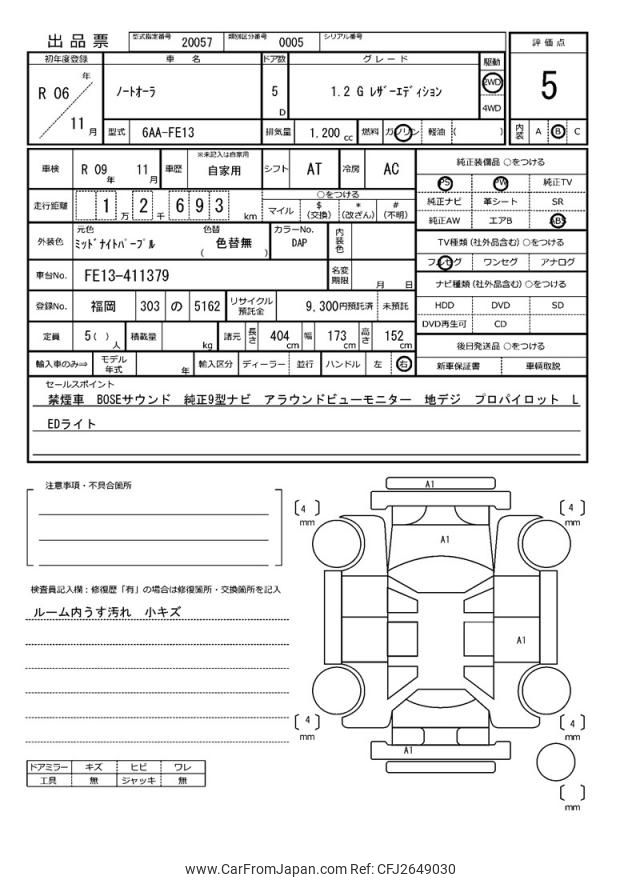 出品票 型式指定番号 20057 類別区分番号 0005 シリアル番号
初年度登録 車名 ドア数 グレード 駆動 評価点
R 06 年 ノートオーラ 5 D 1.2 G レザーエディション 2WD 4WD 5
11 月 型式 6AA-FE13 排気量 1.200 cc 燃料 ガソリン 軽油 ( ) 内装 A B C
車検 R 09 年 11 月 車歴 ※未記入は自家用 自家用 シフト AT 冷房 AC
純正装備品 ○をつける
PS PW 純正TV
純正ナビ 革シート SR
純正AW エアB ABS
走行距離 1 万 2 千 6 9 3 km
○をつける
マイル $ (交換) * (改ざん) # (不明)
外装色 元色 ミッドナイトパープル 色替 ( 色替無 ) カラーNo. DAP 内装色
TV種類 (社外品含む) ○をつける
フルセグ ワンセグ アナログ
車台No. FE13-411379 名変期限 月 日
ナビ種類 (社外品含む) ○をつける
HDD DVD SD
DVD再生可 CD
登録No. 福岡 303 の 5162 リサイクル預託金 9,300円預託済 未預託
定員 5( ) 人 積載量 kg 諸元 長さ 404 cm 幅 173 cm 高さ 152 cm
後日発送品 ○をつける
新車保証書 車輌取説
輸入車のみ⇒ モデル年式 年 輸入区分 ディーラー 並行 ハンドル 左 右
セールスポイント
禁煙車 BOSEサウンド 純正9型ナビ アラウンドビューモニター 地デジ プロパイロット L
EDライト
注意事項・不具合箇所
検査員記入欄：修復歴「有」の場合は修復箇所・交換箇所を記入
ルーム内うす汚れ 小キズ
ドアミラー キズ ヒビ ワレ
工具 無 ジャッキ 無
A1
4 mm
4 mm
A1
A1
4 mm
4 mm
A1
mm
www.CarFromJapan.com Ref: CFJ2649030